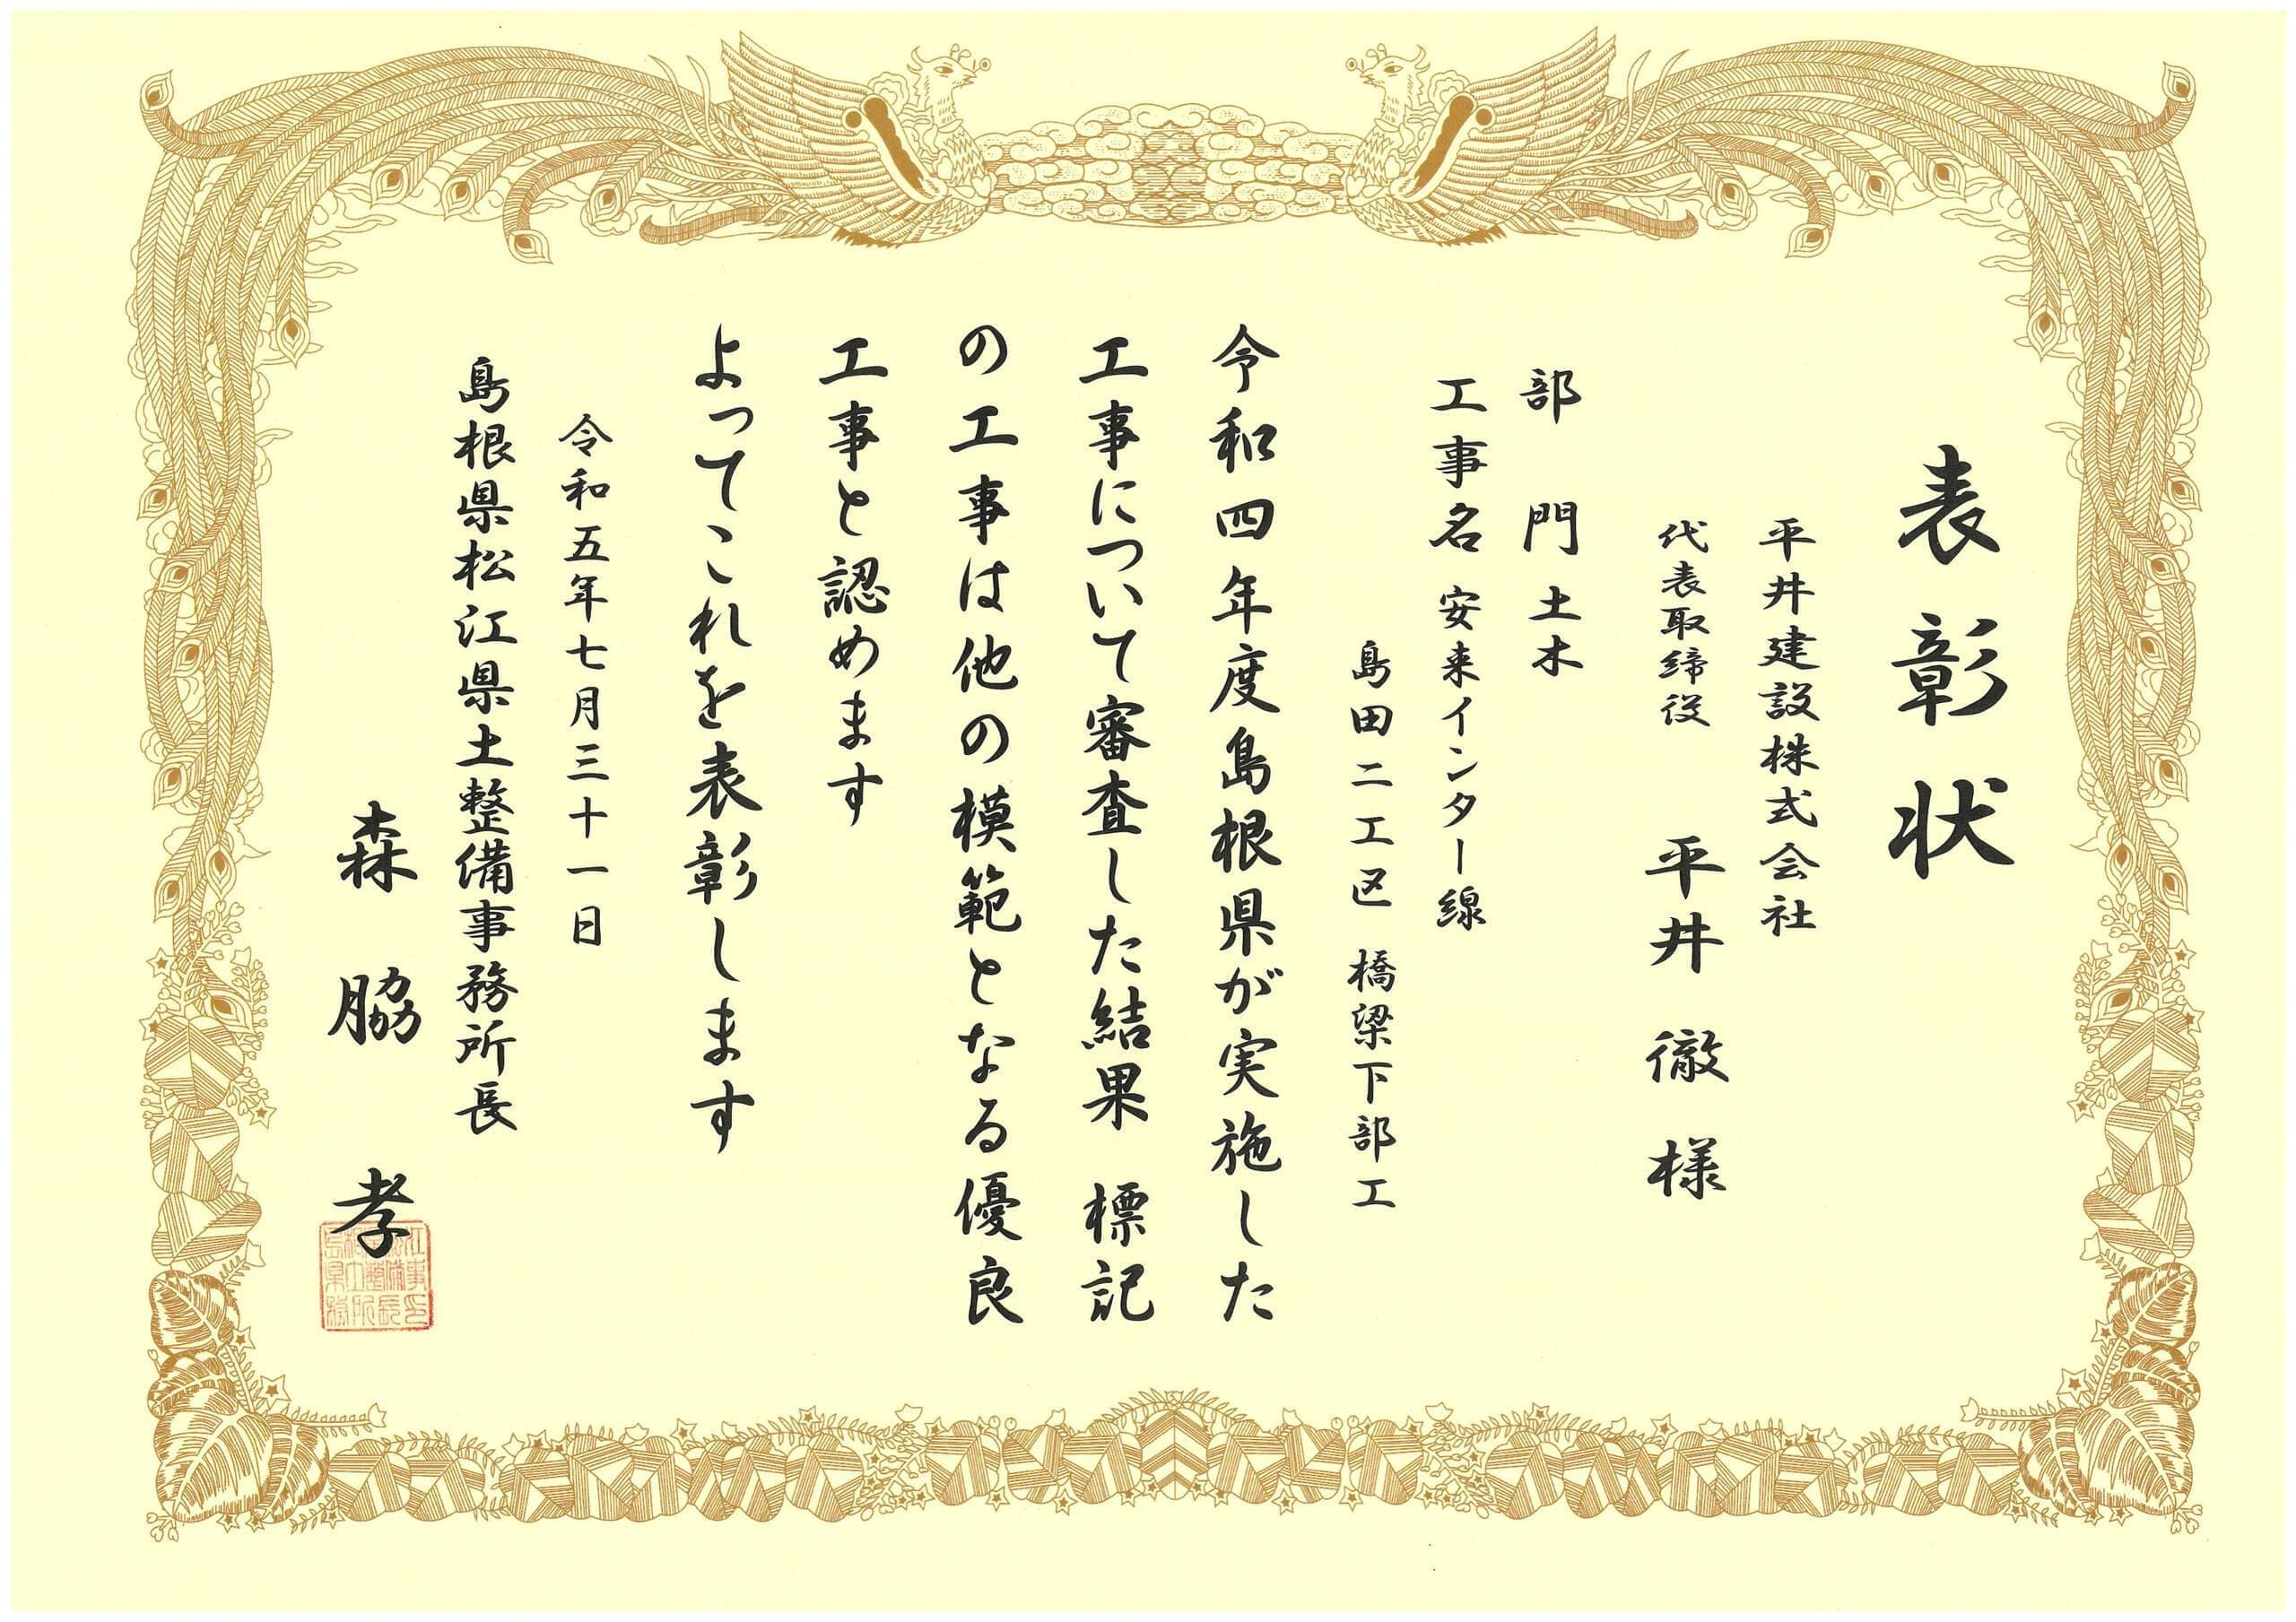 表彰状
平井建設株式会社
代表取締役 平井 徹 様
部 門 土木
工事名 安来インター線
島田二工区 橋梁下部工
令和四年度島根県が実施した
工事について審査した結果 標記
の工事は他の模範となる優良
工事と認めます
よってこれを表彰します
令和五年七月三十一日
島根県松江県土整備事務所長
森 脇 孝